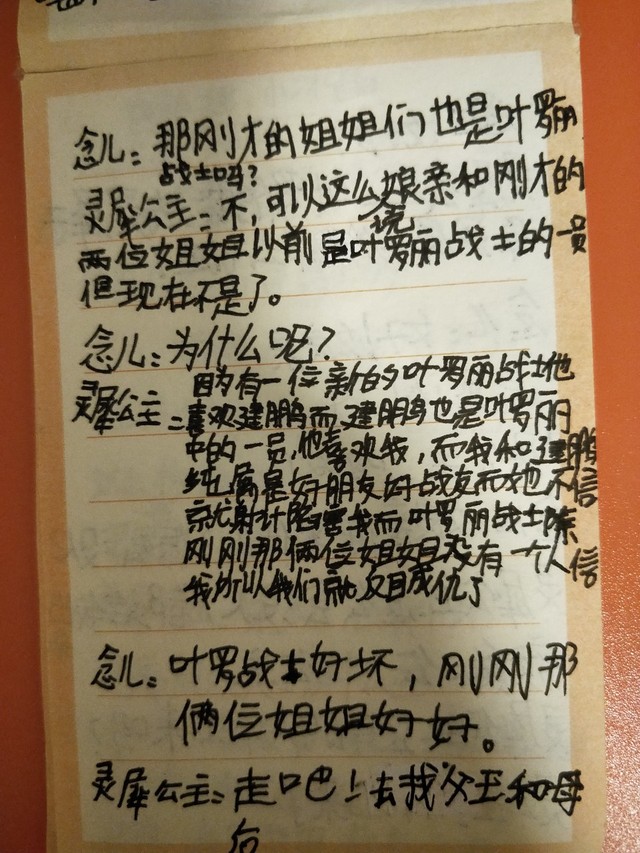 念儿：那刚才的姐姐们也是叶罗丽
战士吗？
灵犀公主：不，可以这么说娘亲和刚才的
两位姐姐以前是叶罗丽战士的一员
但现在不是了。
念儿：为什么呢？
灵犀公主：因为有一位新的叶罗丽战士他
喜欢建鹏而建鹏也是叶罗丽
中的一员，他喜欢我，而我和建鹏
纯属是好朋友好战友而她不信
就射计陷害我而叶罗丽战士除
刚刚那俩位姐姐没有一个人信
我所以我们就反目成仇了
念儿：叶罗战士好坏，刚刚那
俩位姐姐好好。
灵犀公主：走吧！去我父王和母
后